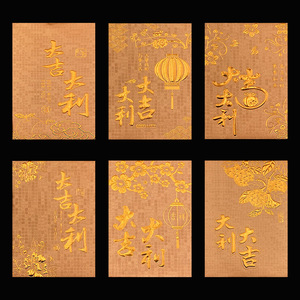 大吉
大利
大吉
大利
大吉
大利
大吉
大利
大吉
大利
大吉
大利